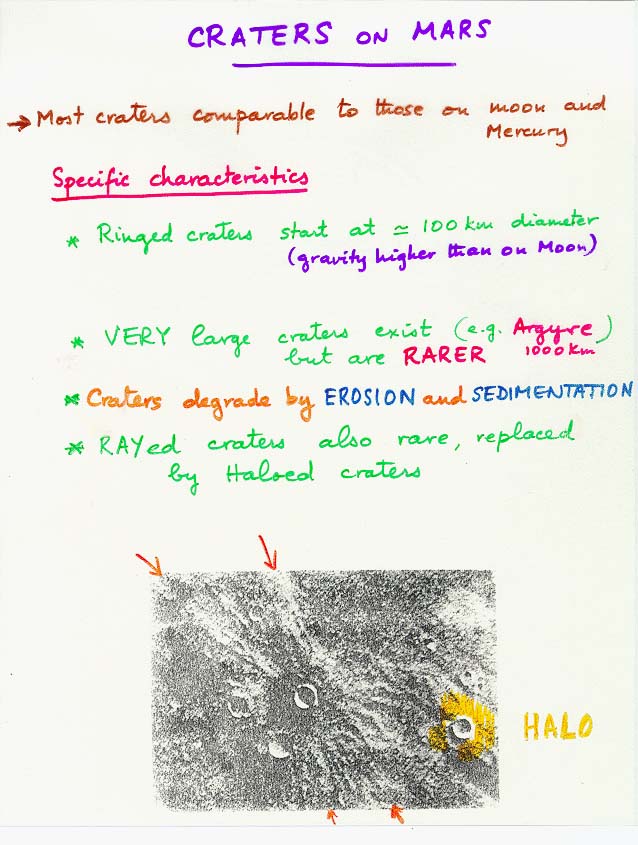 CRATERS ON MARS
→ Most craters comparable to those on moon and
Mercury
Specific characteristics
* Ringed craters start at ≃ 100 km diameter
(gravity higher than on Moon)
* VERY large craters exist (e.g. Argyre)
but are RARER 1000 km
* Craters degrade by EROSION and SEDIMENTATION
* RAYed craters also rare, replaced
by Haloed craters
HALO